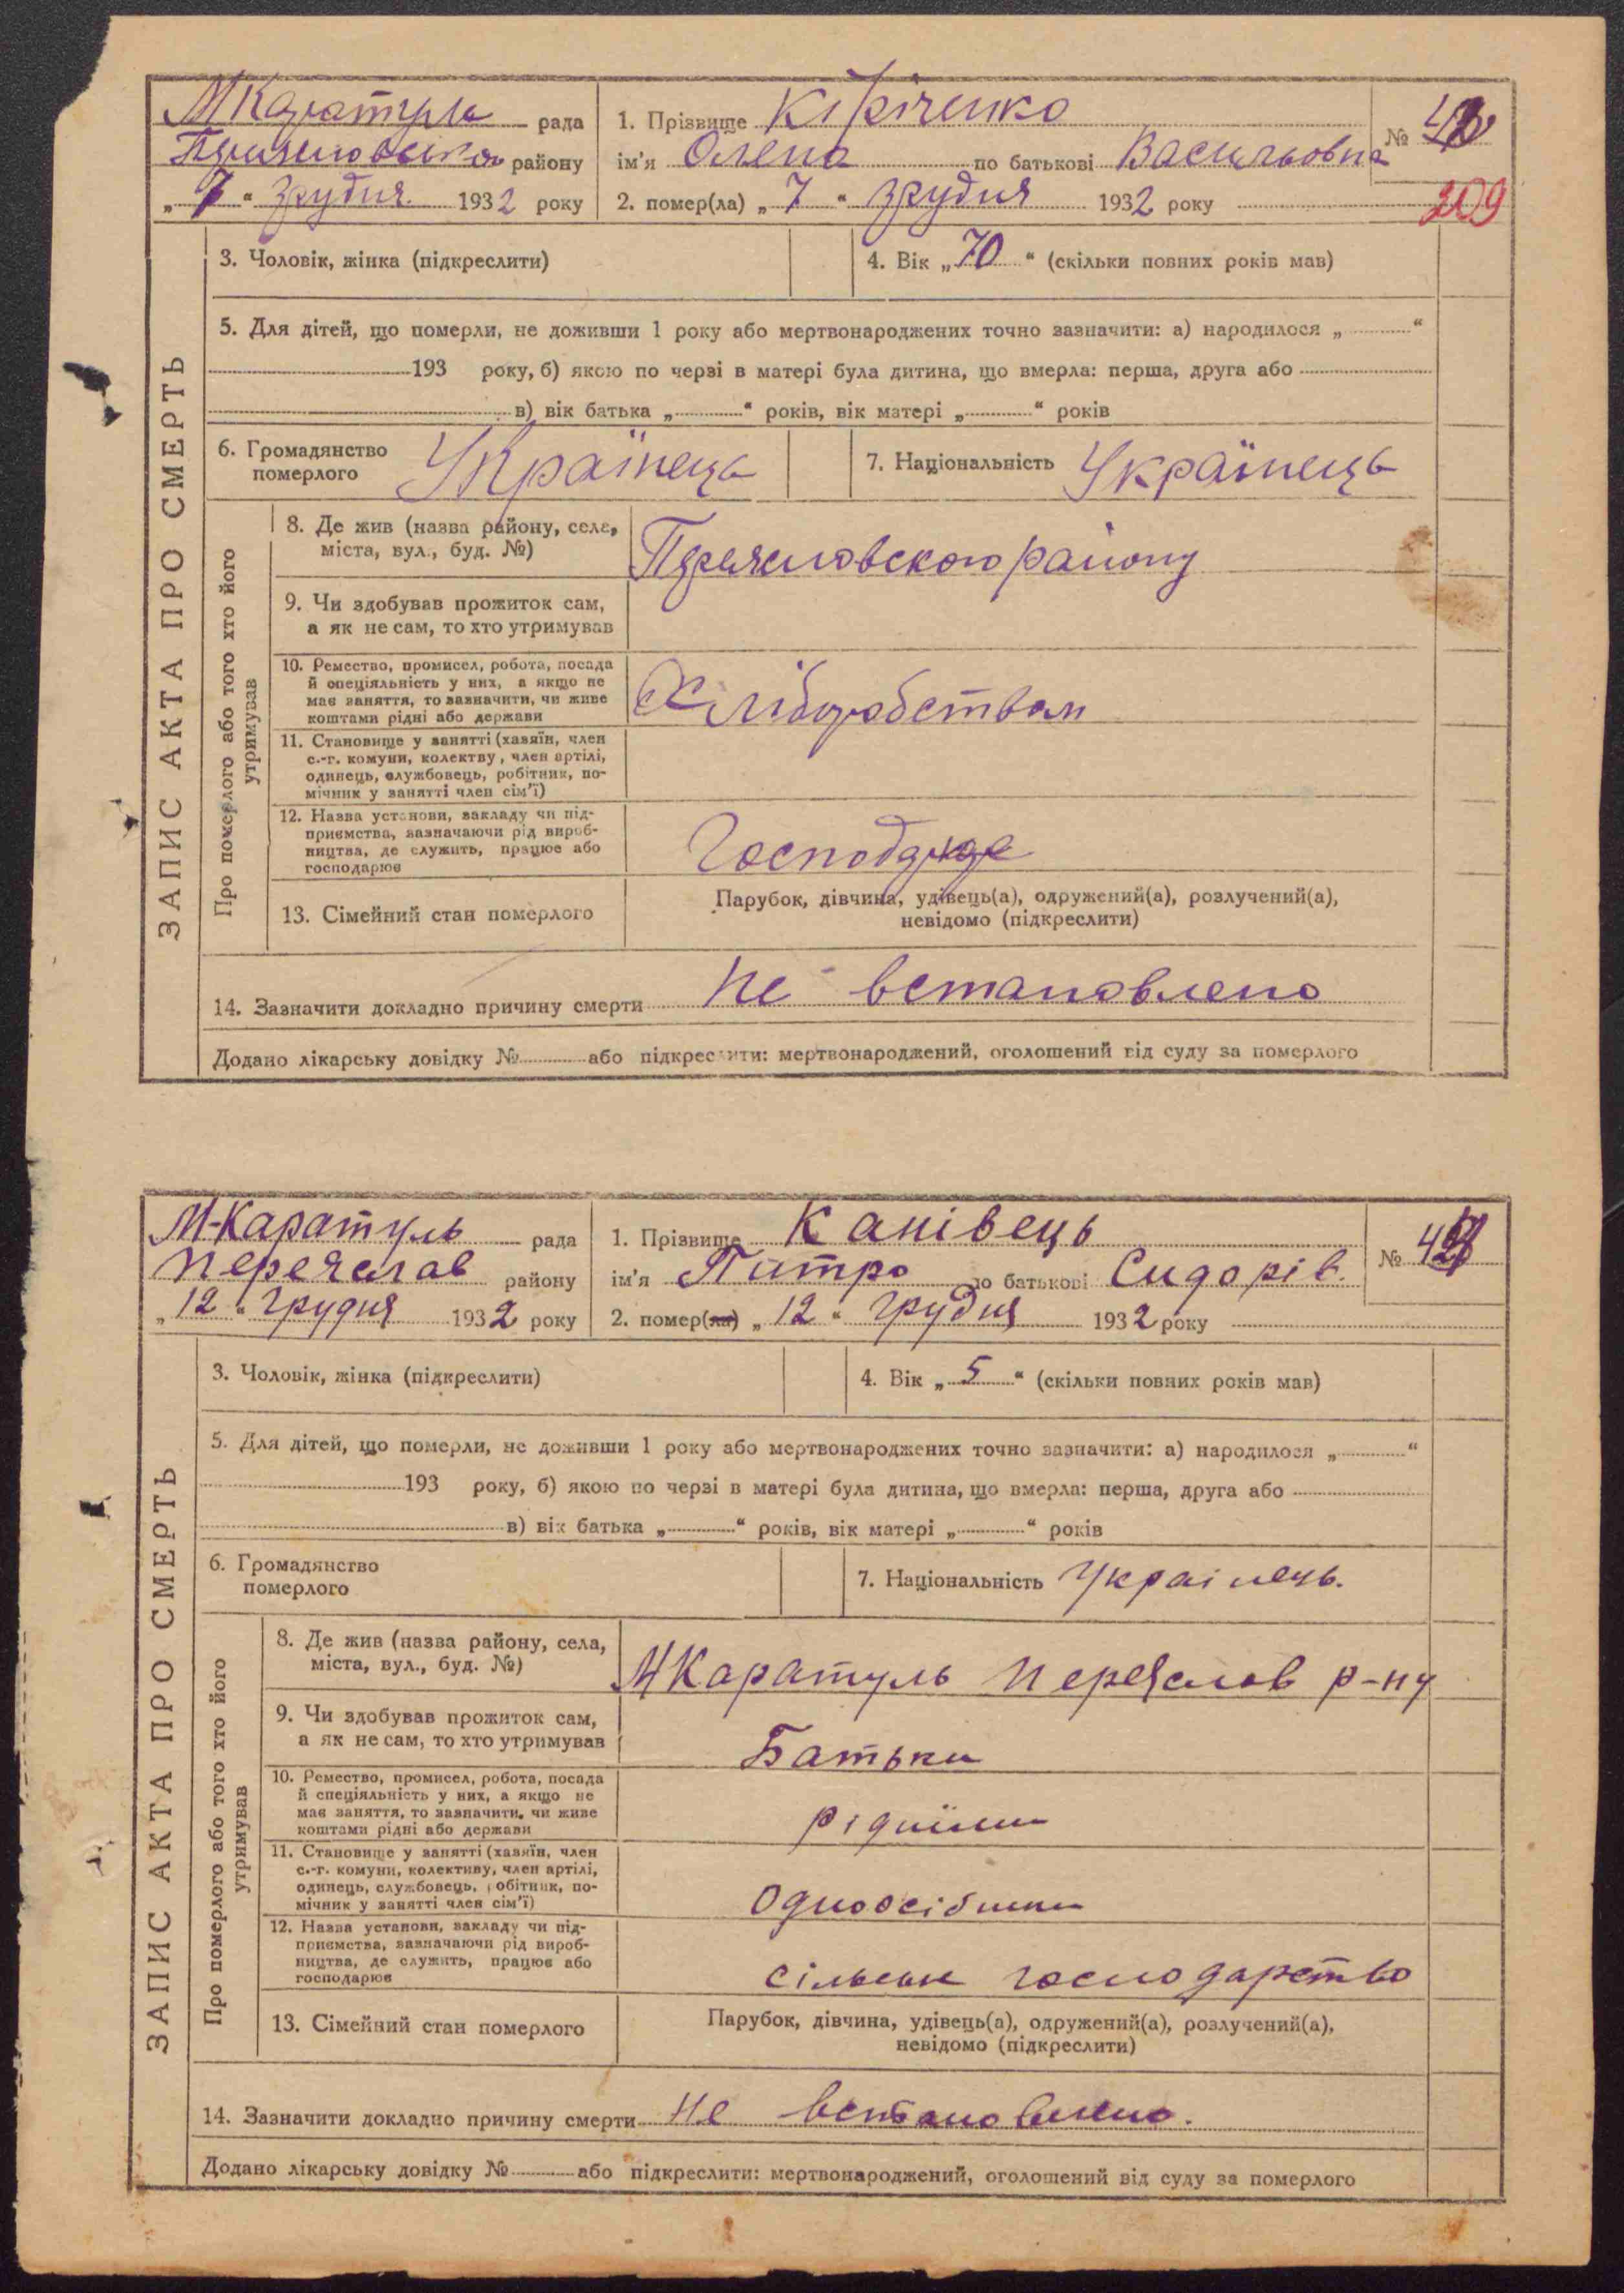 М Каратуль рада
Переяславського району
„ 7 “ грудня 1932 року
1. Прізвище Кіріченко
ім'я Олена по батькові Васильовна
2. помер(ла) „ 7 “ грудня 1932 року
№
209
ЗАПИС АКТА ПРО СМЕРТЬ
3. Чоловік, жінка (підкреслити)
4. Вік „ 70 “ (скільки повних років мав)
5. Для дітей, що померли, не доживши 1 року або мертвонароджених точно зазначити: а) народилося „ “
193 року, б) якою по черзі в матері була дитина, що вмерла: перша, друга або
в) вік батька „ “ років, вік матері „ “ років
6. Громадянство
померлого
Українець
7. Національність Українець
Про померлого або того хто його
утримував
8. Де жив (назва району, села,
міста, вул., буд. №)
Переяславского району
9. Чи здобував прожиток сам,
а як не сам, то хто утримував
10. Ремество, промисел, робота, посада
й спеціяльність у них, а якщо не
має заняття, то зазначити, чи живе
коштами рідні або держави
Хліборобством
11. Становище у занятті (хазяїн, член
с.-г. комуни, колектву, член артілі,
одинець, службовець, робітник, по-
мічник у занятті член сім'ї)
12. Назва установи, закладу чи під-
приємства, зазначаючи рід вироб-
ництва, де служить, працює або
господарює
13. Сімейний стан померлого
Парубок, дівчина, удівець(а), одружений(а), розлучений(а),
невідомо (підкреслити)
14. Зазначити докладно причину смерти не встановлено
Додано лікарську довідку № або підкреслити: мертвонароджений, оголошений від суду за померлого
М-Каратуль рада
Переяслав району
„ 12 “ грудня 1932 року
1. Прізвище Канівець
ім'я Питро по батькові Сидорів.
2. помер(ла) „ 12 “ грудня 1932 року
№
ЗАПИС АКТА ПРО СМЕРТЬ
3. Чоловік, жінка (підкреслити)
4. Вік „ 5 “ (скільки повних років мав)
5. Для дітей, що померли, не доживши 1 року або мертвонароджених точно зазначити: а) народилося „ “
193 року, б) якою по черзі в матері була дитина, що вмерла: перша, друга або
в) вік батька „ “ років, вік матері „ “ років
6. Громадянство
померлого
7. Національність Украінець.
Про померлого або того хто його
утримував
8. Де жив (назва району, села,
міста, вул., буд. №)
М Каратуль Переяслав р-ну
9. Чи здобував прожиток сам,
а як не сам, то хто утримував
Батьки
10. Ремество, промисел, робота, посада
й спеціяльність у них, а якщо не
має заняття, то зазначити, чи живе
коштами рідні або держави
11. Становище у занятті (хазяїн, член
с.-г. комуни, колективу, член артілі,
одинець, службовець, робітник, по-
мічник у занятті член сім'ї)
Одноосібники
12. Назва установи, закладу чи під-
приємства, зазначаючи рід вироб-
ництва, де служить, працює або
господарює
сільське господарство
13. Сімейний стан померлого
Парубок, дівчина, удівець(а), одружений(а), розлучений(а),
невідомо (підкреслити)
14. Зазначити докладно причину смерти не встановлено.
Додано лікарську довідку № або підкреслити: мертвонароджений, оголошений від суду за померлого